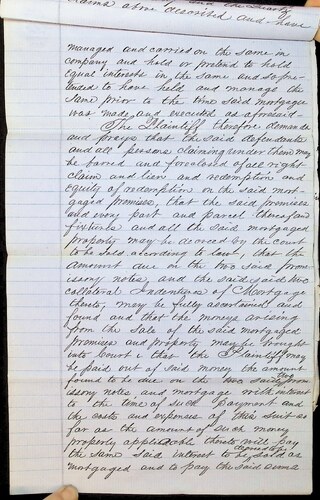 claims above described and have
managed and carried on the same in
company and hold or pretend to hold
equal interests in the same and so pre-
tended to have held and manage the
same prior to the time said mortgage
was made and executed as aforesaid-
The Plaintiff therefore demands
and prays that the said defendants
and all persons claiming under them may
be barred and foreclosed of all right
claim and lien and redemption and
equity of redemption on the said mort-
gaged premises, that the said premises
and every part and parcel thereof and
fixtures and all the said mortgaged
property may be decreed by the court
to be sold according to law, that the
amount due in the two said prom-
issory notes, and the said two
collateral Indentures of Mortgage
thereto, may be fully ascertained and
found and that the moneys arising
from the sale of the said mortgaged
premises and property may be brought
into Court & that the Plaintiff may
be paid out of said money the amount
found to be due on the two said prom
issory notes and mortgage with interest
to the time of such payment and
the costs and expenses of this suit so
far as the amount of such money
properly applicable thereto will pay
the same said interest to be sold as
mortgaged and to pay the said sums